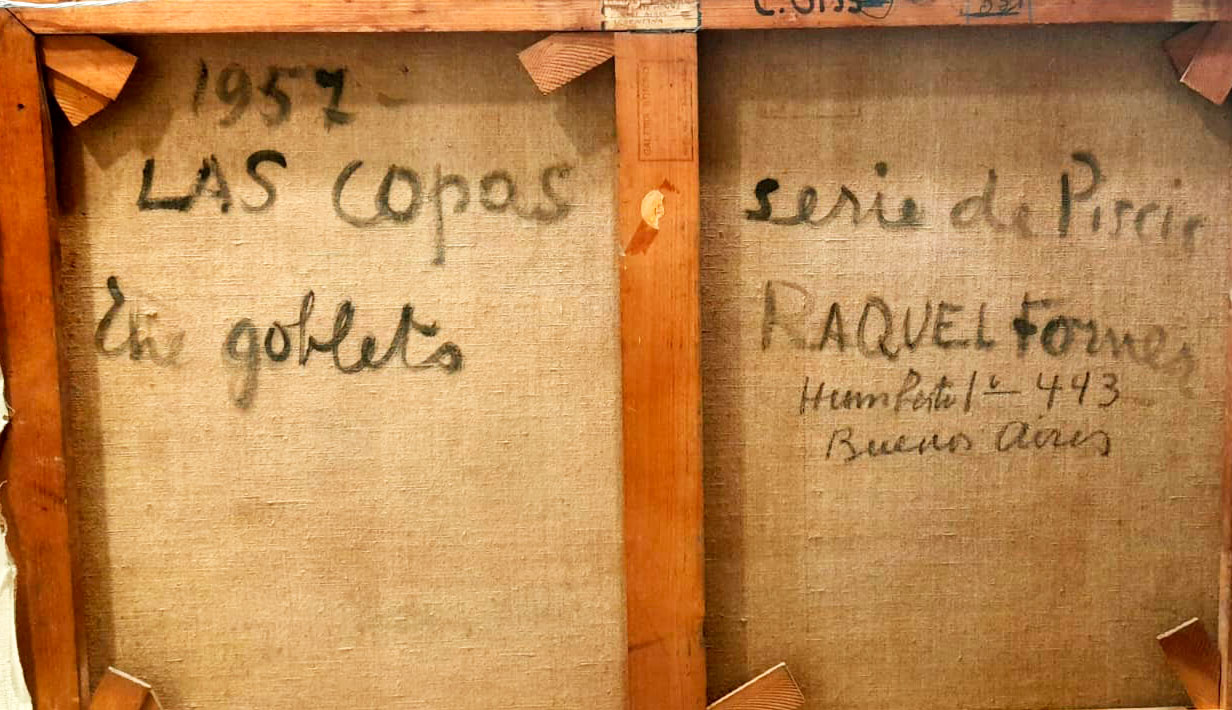 1957
LAS Copas
The goblets
serie de Piscis
RAQUEL Forner
Humberto 1º 443
Buenos Aires